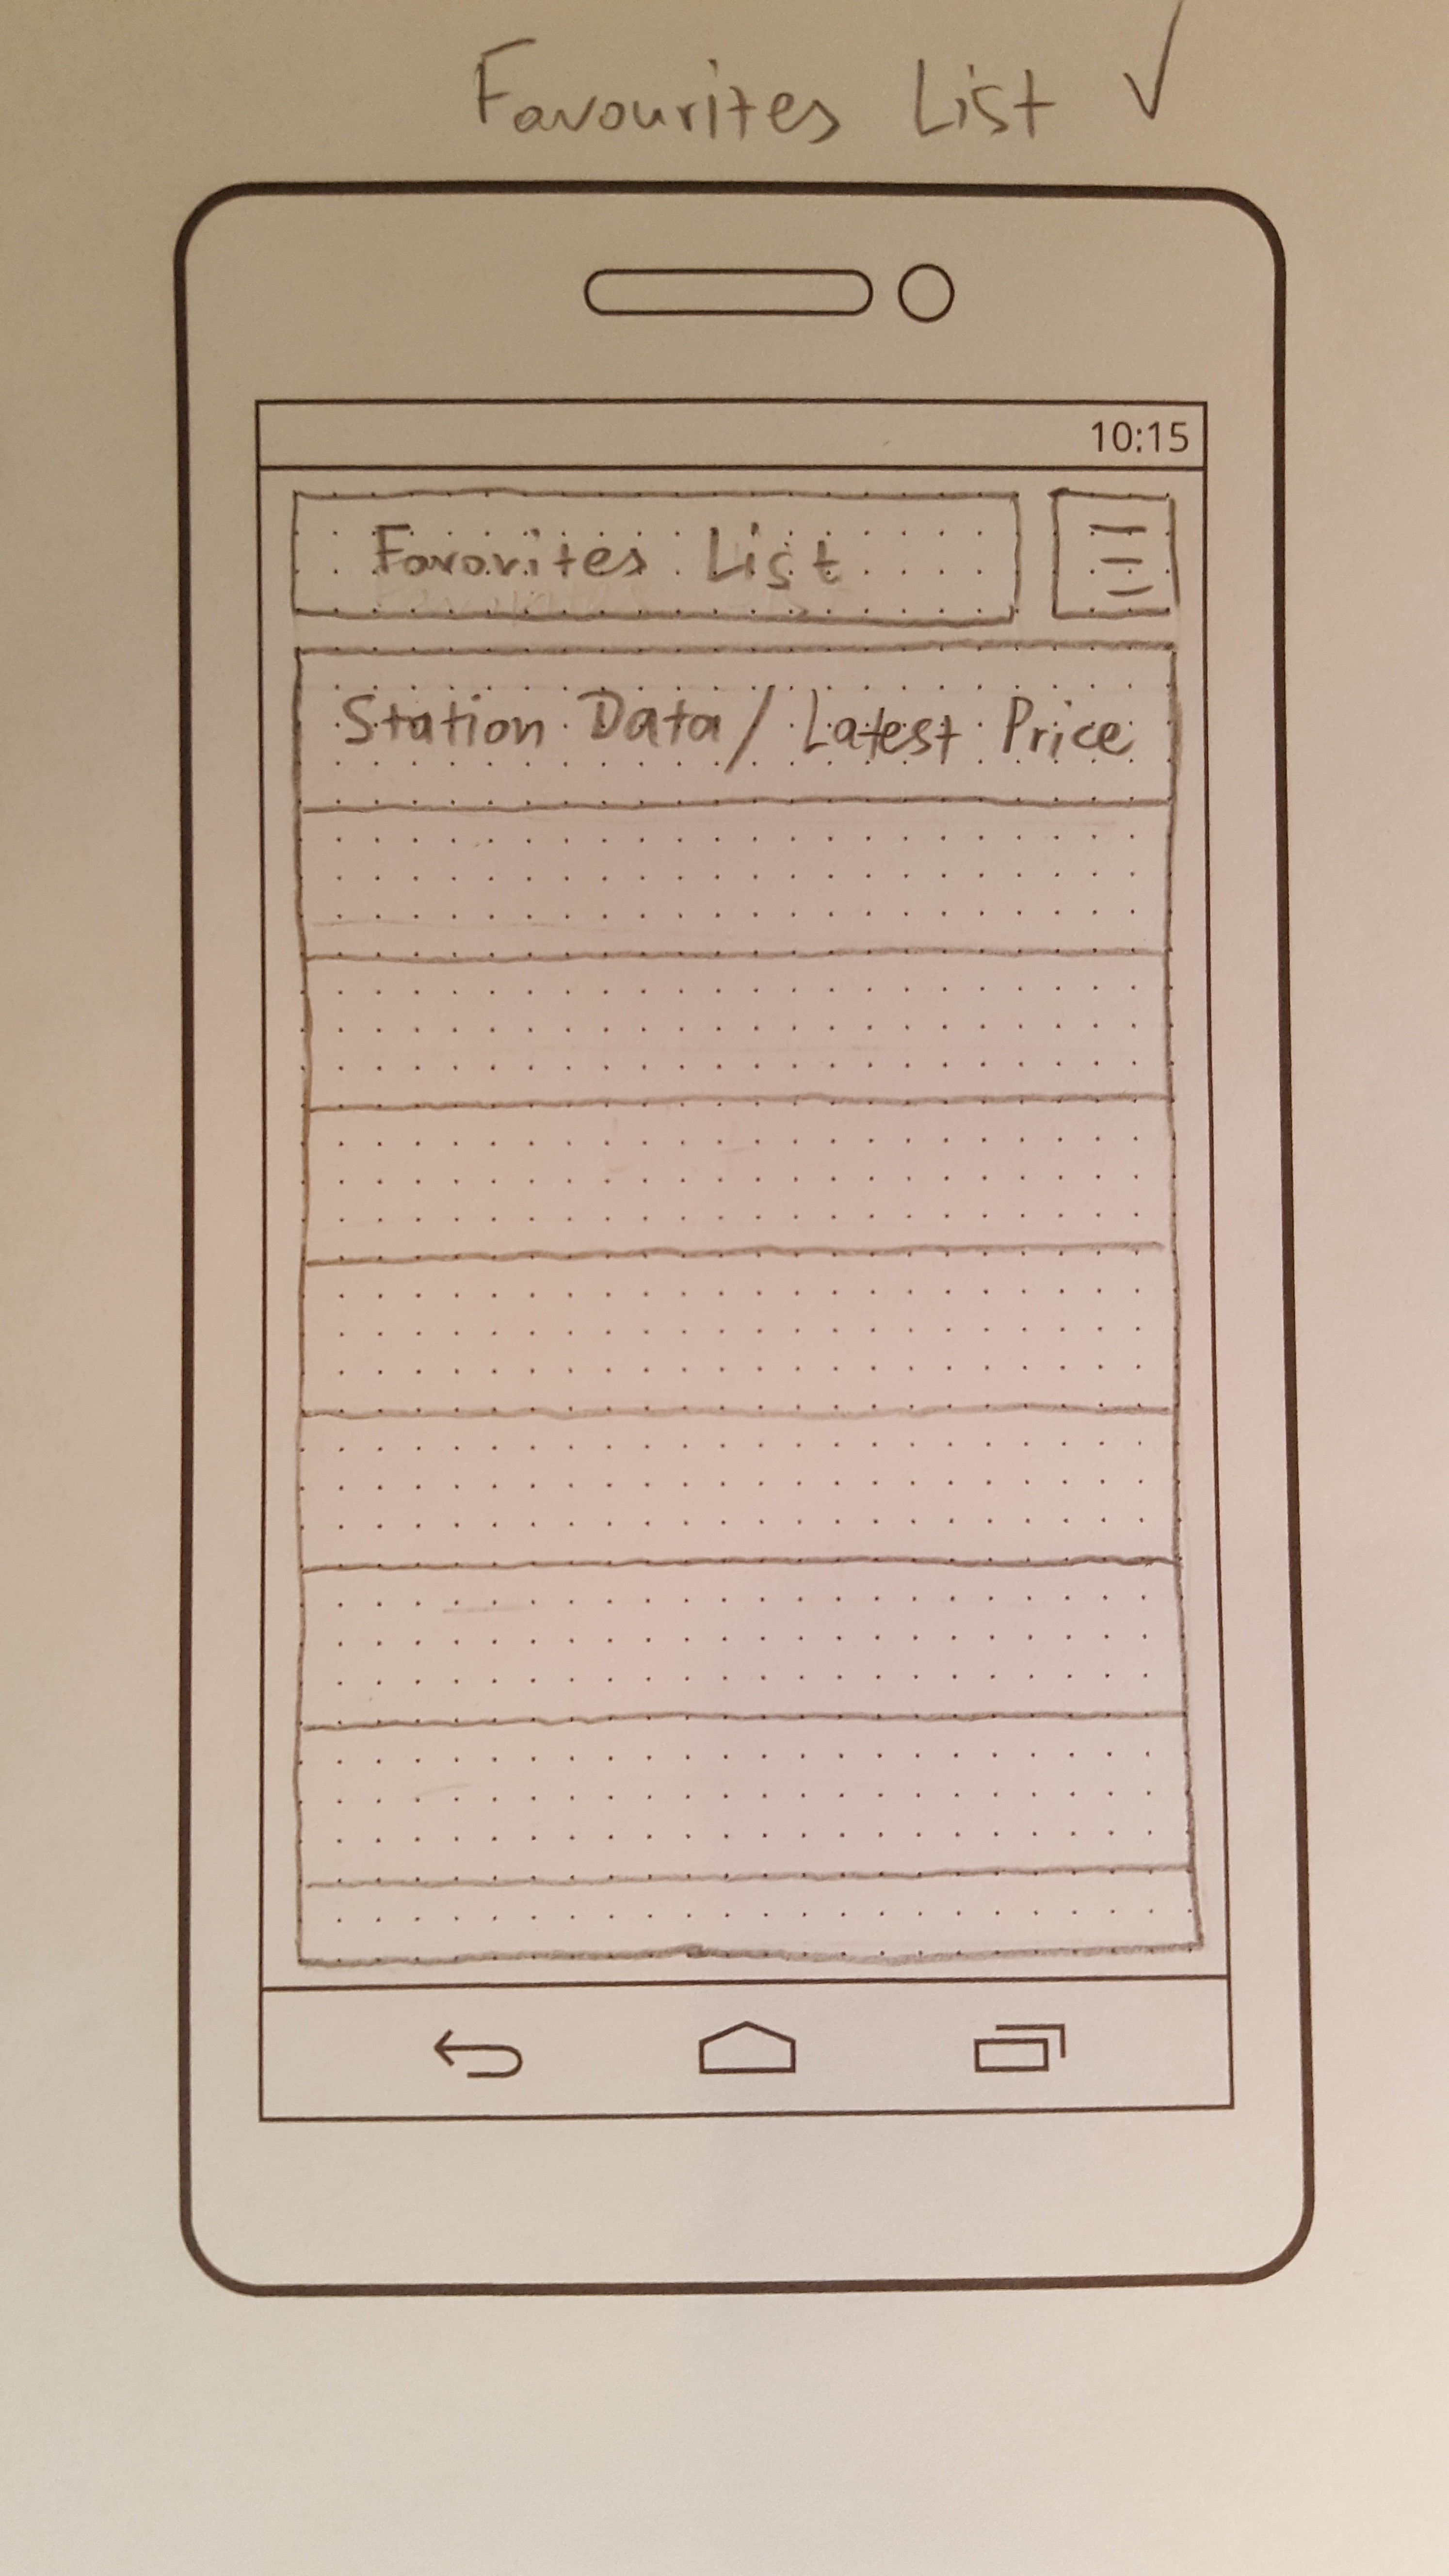 Favourites List
10:15
Favorites List
Station Data/ Latest Price